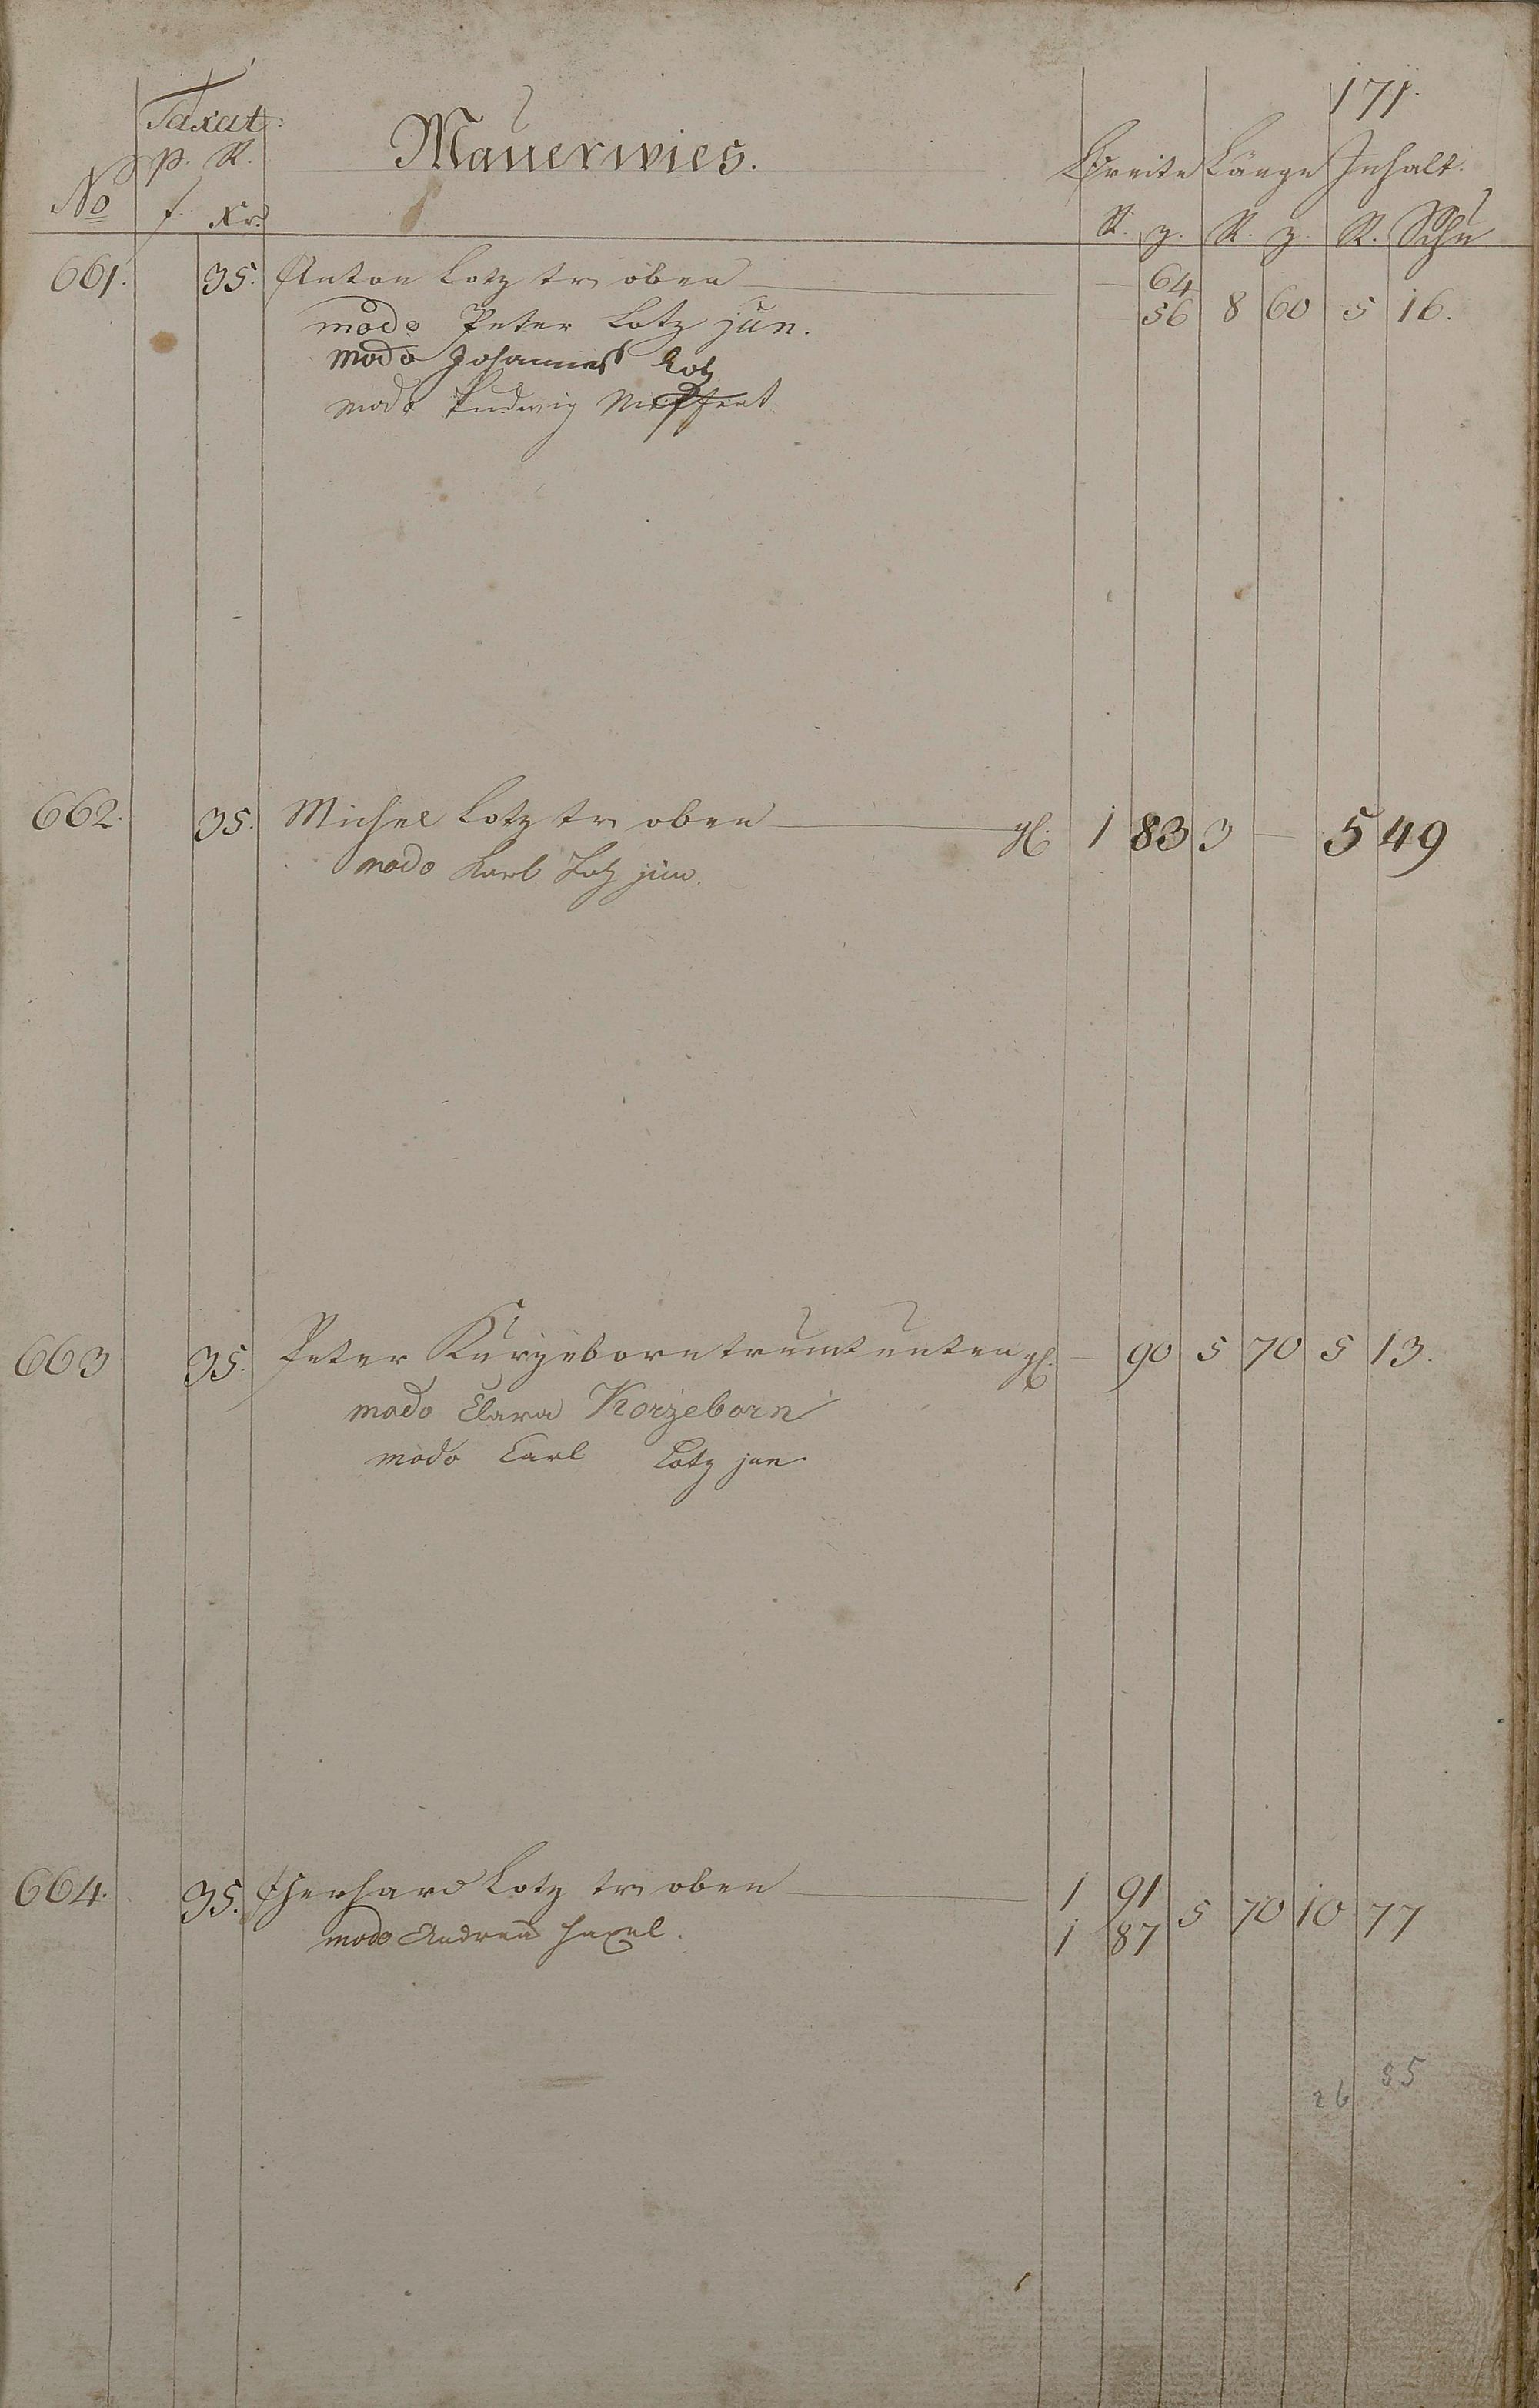 171.
Taxat:
p. R.
Mauerwies.
Breite Länge Inhalt.
No f. Xr. R. z. R. z. R. Schu
661. 35. Anton Lotz trs oben 64
56 8 60 5 16.
modo Peter Lotz jun.
modo Johannes Lotz
modo Ludwig Meffert
662. 35. Michel Lotz trs oben gl. 1 83 3 — 5 49
modo Karl Lotz jun.
663 35. Peter Kurzeborn trumt unten gl. — 90 5 70 5 13.
modo Clara Korzeborn
modo Carl Lotz jun
664. 35. Eherhard Lotz trs oben 1 91
1 87 5 70 10 77
modo Andreas Haxel.
26 55